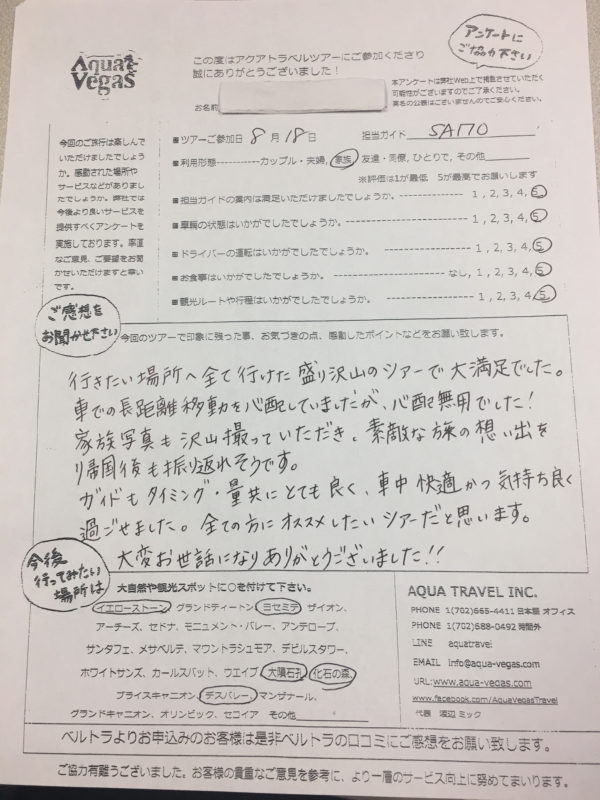 Aqua Vegas
この度はアクアトラベルツアーにご参加くださり
誠にありがとうございました！
アンケートに
ご協力下さい
本アンケートは弊社Web上で掲載させていただく
可能性がございますのでご了承ください。
実名の公表はございませんのでご安心ください。
お名前
今回のご旅行は楽しんで
いただけましたでしょう
か。感動された場所や
サービスなどがありまし
たでしょうか。弊社では
今後より良いサービスを
提供すべくアンケートを
実施しております。率直
なご意見、ご要望をお聞
かせいただけますと幸い
です。
■ツアーご参加日 8 月 18 日 担当ガイド SAITO
■利用形態-----------カップル・夫婦, 家族, 友達・同僚, ひとりで, その他
※評価は1が最低、5が最高でお願いします
■担当ガイドの案内は満足いただけましたでしょうか。 1, 2, 3, 4, 5
■車輌の状態はいかがでしたでしょうか。 1, 2, 3, 4, 5
■ドライバーの運転はいかがでしたでしょうか。 1, 2, 3, 4, 5
■お食事はいかがでしたでしょうか。 なし, 1, 2, 3, 4, 5
■観光ルートや行程はいかがでしたでしょうか。 1, 2, 3, 4, 5
ご感想を
お聞かせ下さい
今回のツアーで印象に残った事、お気づきの点、感動したポイントなどをお願い致します。
行きたい場所へ全て行けた盛り沢山のツアーで大満足でした。
車での長距離移動を心配していましたが、心配無用でした！
家族写真も沢山撮っていただき、素敵な旅の想い出を
帰国後も振り返れそうです。
ガイドもタイミング・量共にとても良く、車中快適かつ気持ち良く
過ごせました。全ての方にオススメしたいツアーだと思います。
大変お世話になりありがとうございました!!
今後
行ってみたい
場所は
大自然や観光スポットに○を付けて下さい。
イエローストーン, グランドティートン, ヨセミテ, ザイオン,
アーチーズ, セドナ, モニュメント・バレー, アンテロープ,
サンタフェ, メサベルデ, マウントラシュモア, デビルスタワー,
ホワイトサンズ, カールスバット, ウエイブ, 大隕石孔, 化石の森,
ブライスキャニオン, デスバレー, マンザナール,
グランドキャニオン, オリンピック, セコイア その他
AQUA TRAVEL INC.
PHONE 1(702)665-4411 日本語 オフィス
PHONE 1(702)688-0492 時間外
LINE aquatravel
EMAIL info@aqua-vegas.com
URL:www.aqua-vegas.com
www.facebook.com/AquaVegasTravel
代表 渡辺 ミック
ベルトラよりお申込みのお客様は是非ベルトラの口コミにご感想をお願い致します。
ご協力有難うございました。お客様の貴重なご意見を参考に、より一層のサービス向上に努めてまいります。